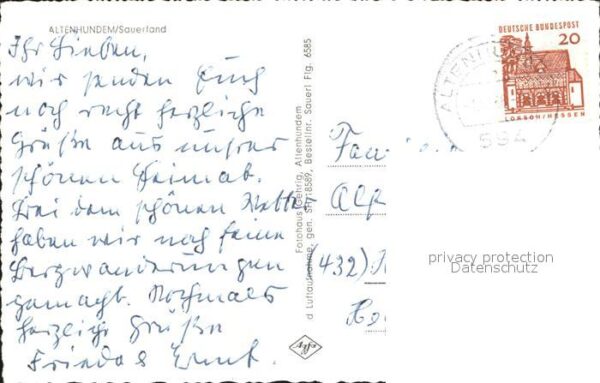 ALTENHUNDEM/Sauerland
Ihr Lieben,
wir senden Euch
noch recht herzliche
Grüße aus unsrer
schönen Heimat.
Bei dem schönen Wetter
haben wir noch feine
Bergwanderungen
gemacht. Nochmals
herzliche Grüße
Frieda & Ernst.
Fotohaus Gehrig, Altenhundem
d Luftaufnahme, gen. SPV:8589, Bestellnr. Sauerl Flg. 6585
Agfa
DEUTSCHE BUNDESPOST
20
LORSCH/HESSEN
ALTENHUNDEM
594
432)
privacy protection
Datenschutz